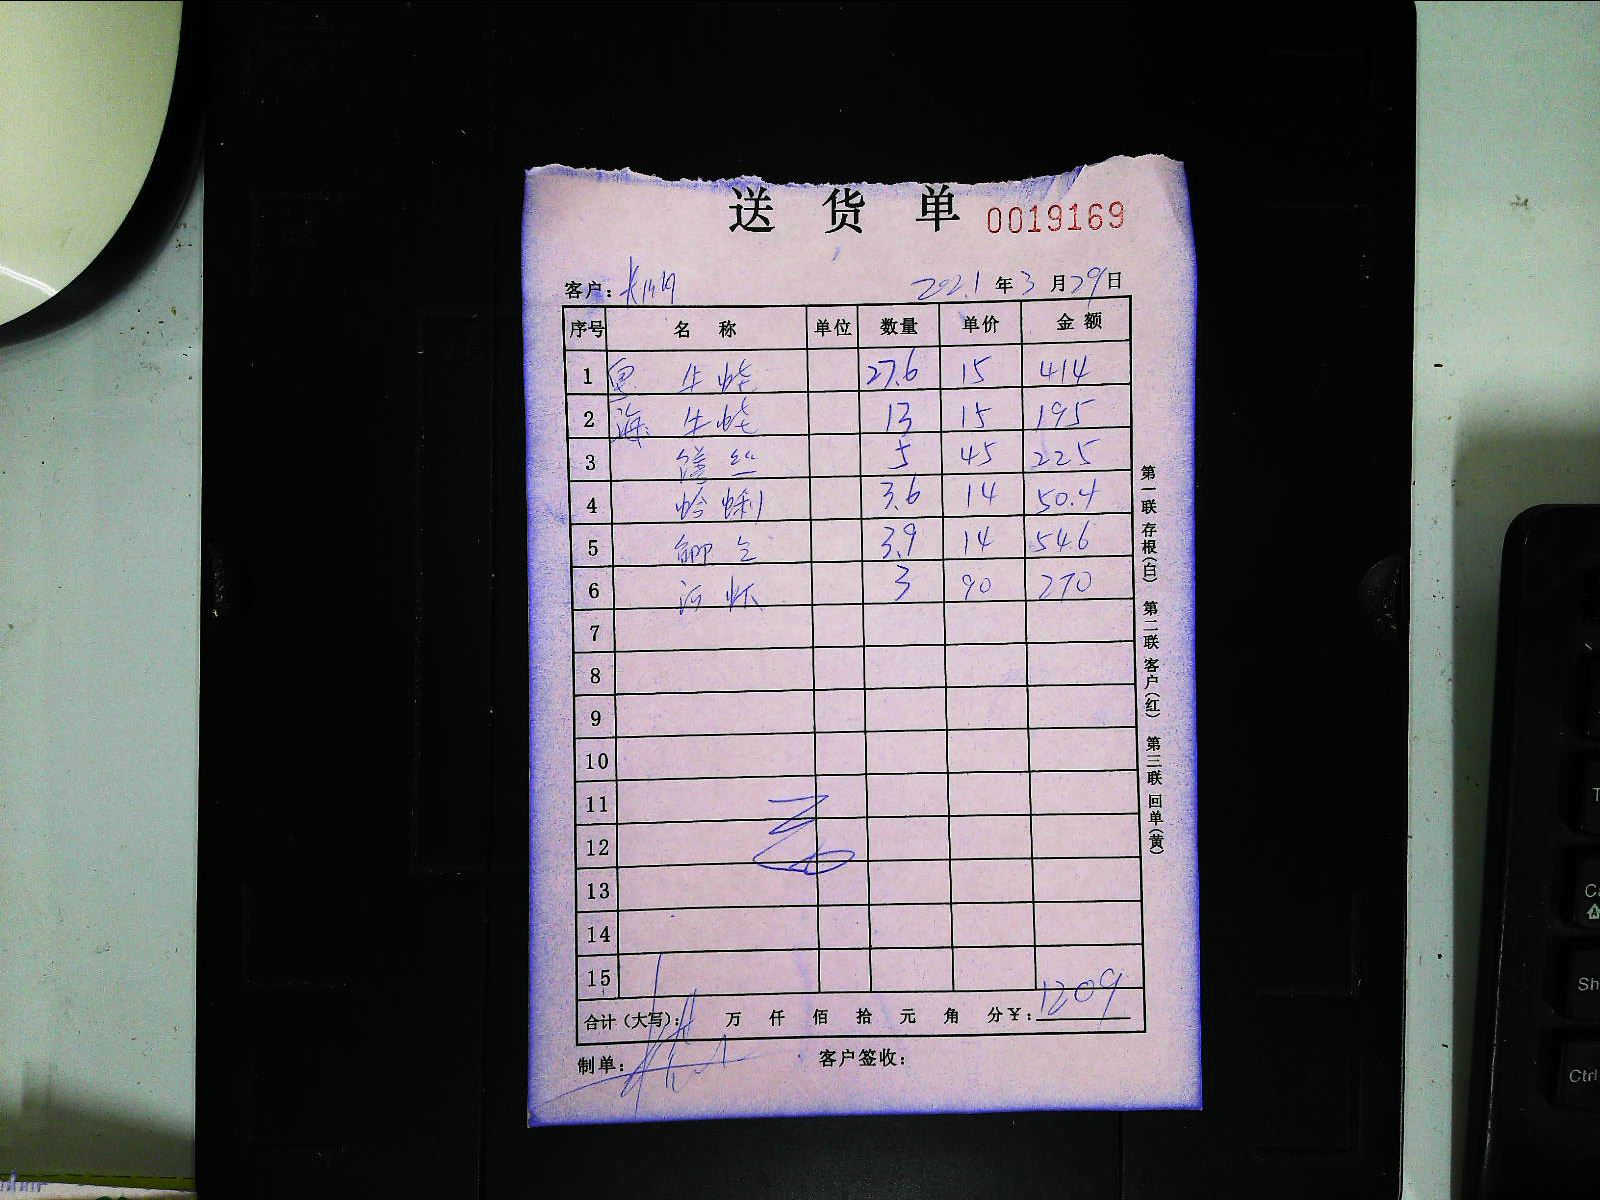 送货单 0019169
客户： 2021年3月29日
序号 名称 单位 数量 单价 金额
1 27.6 15 414
2 13 15 195
3 丝 5 45 225
4 蛤蜊 3.6 14 50.4
5 鲫 3.9 14 54.6
6 河 3 90 270
7
8
9
10
11
12
13
14
15
合计（大写）： 万 仟 佰 拾 元 角 分 ￥：1209
制单： 客户签收：
第一联 存根（白） 第二联 客户（红） 第三联 回单（黄）
T
Sh
Ctrl